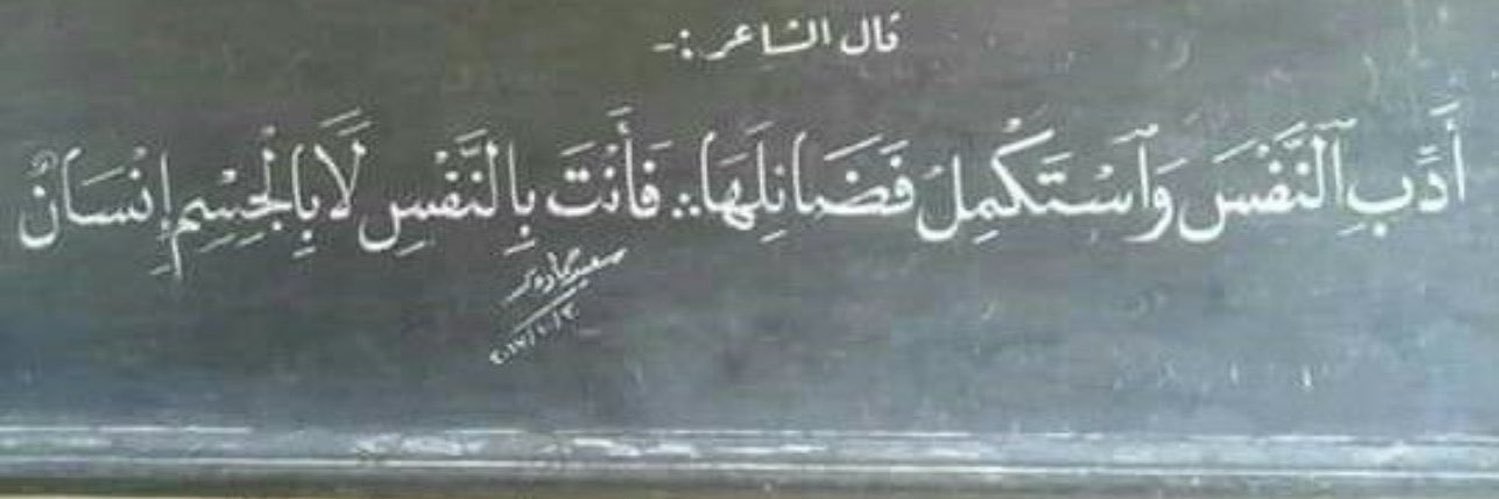 قال الشاعر :-
أَدِّبِ ٱلنَّفْسَ وَٱسْتَكْمِلْ فَضَائِلَهَا .. فَأَنْتَ بِالنَّفْسِ لَا بِالْجِسْمِ إِنْسَانٌ
سعيد